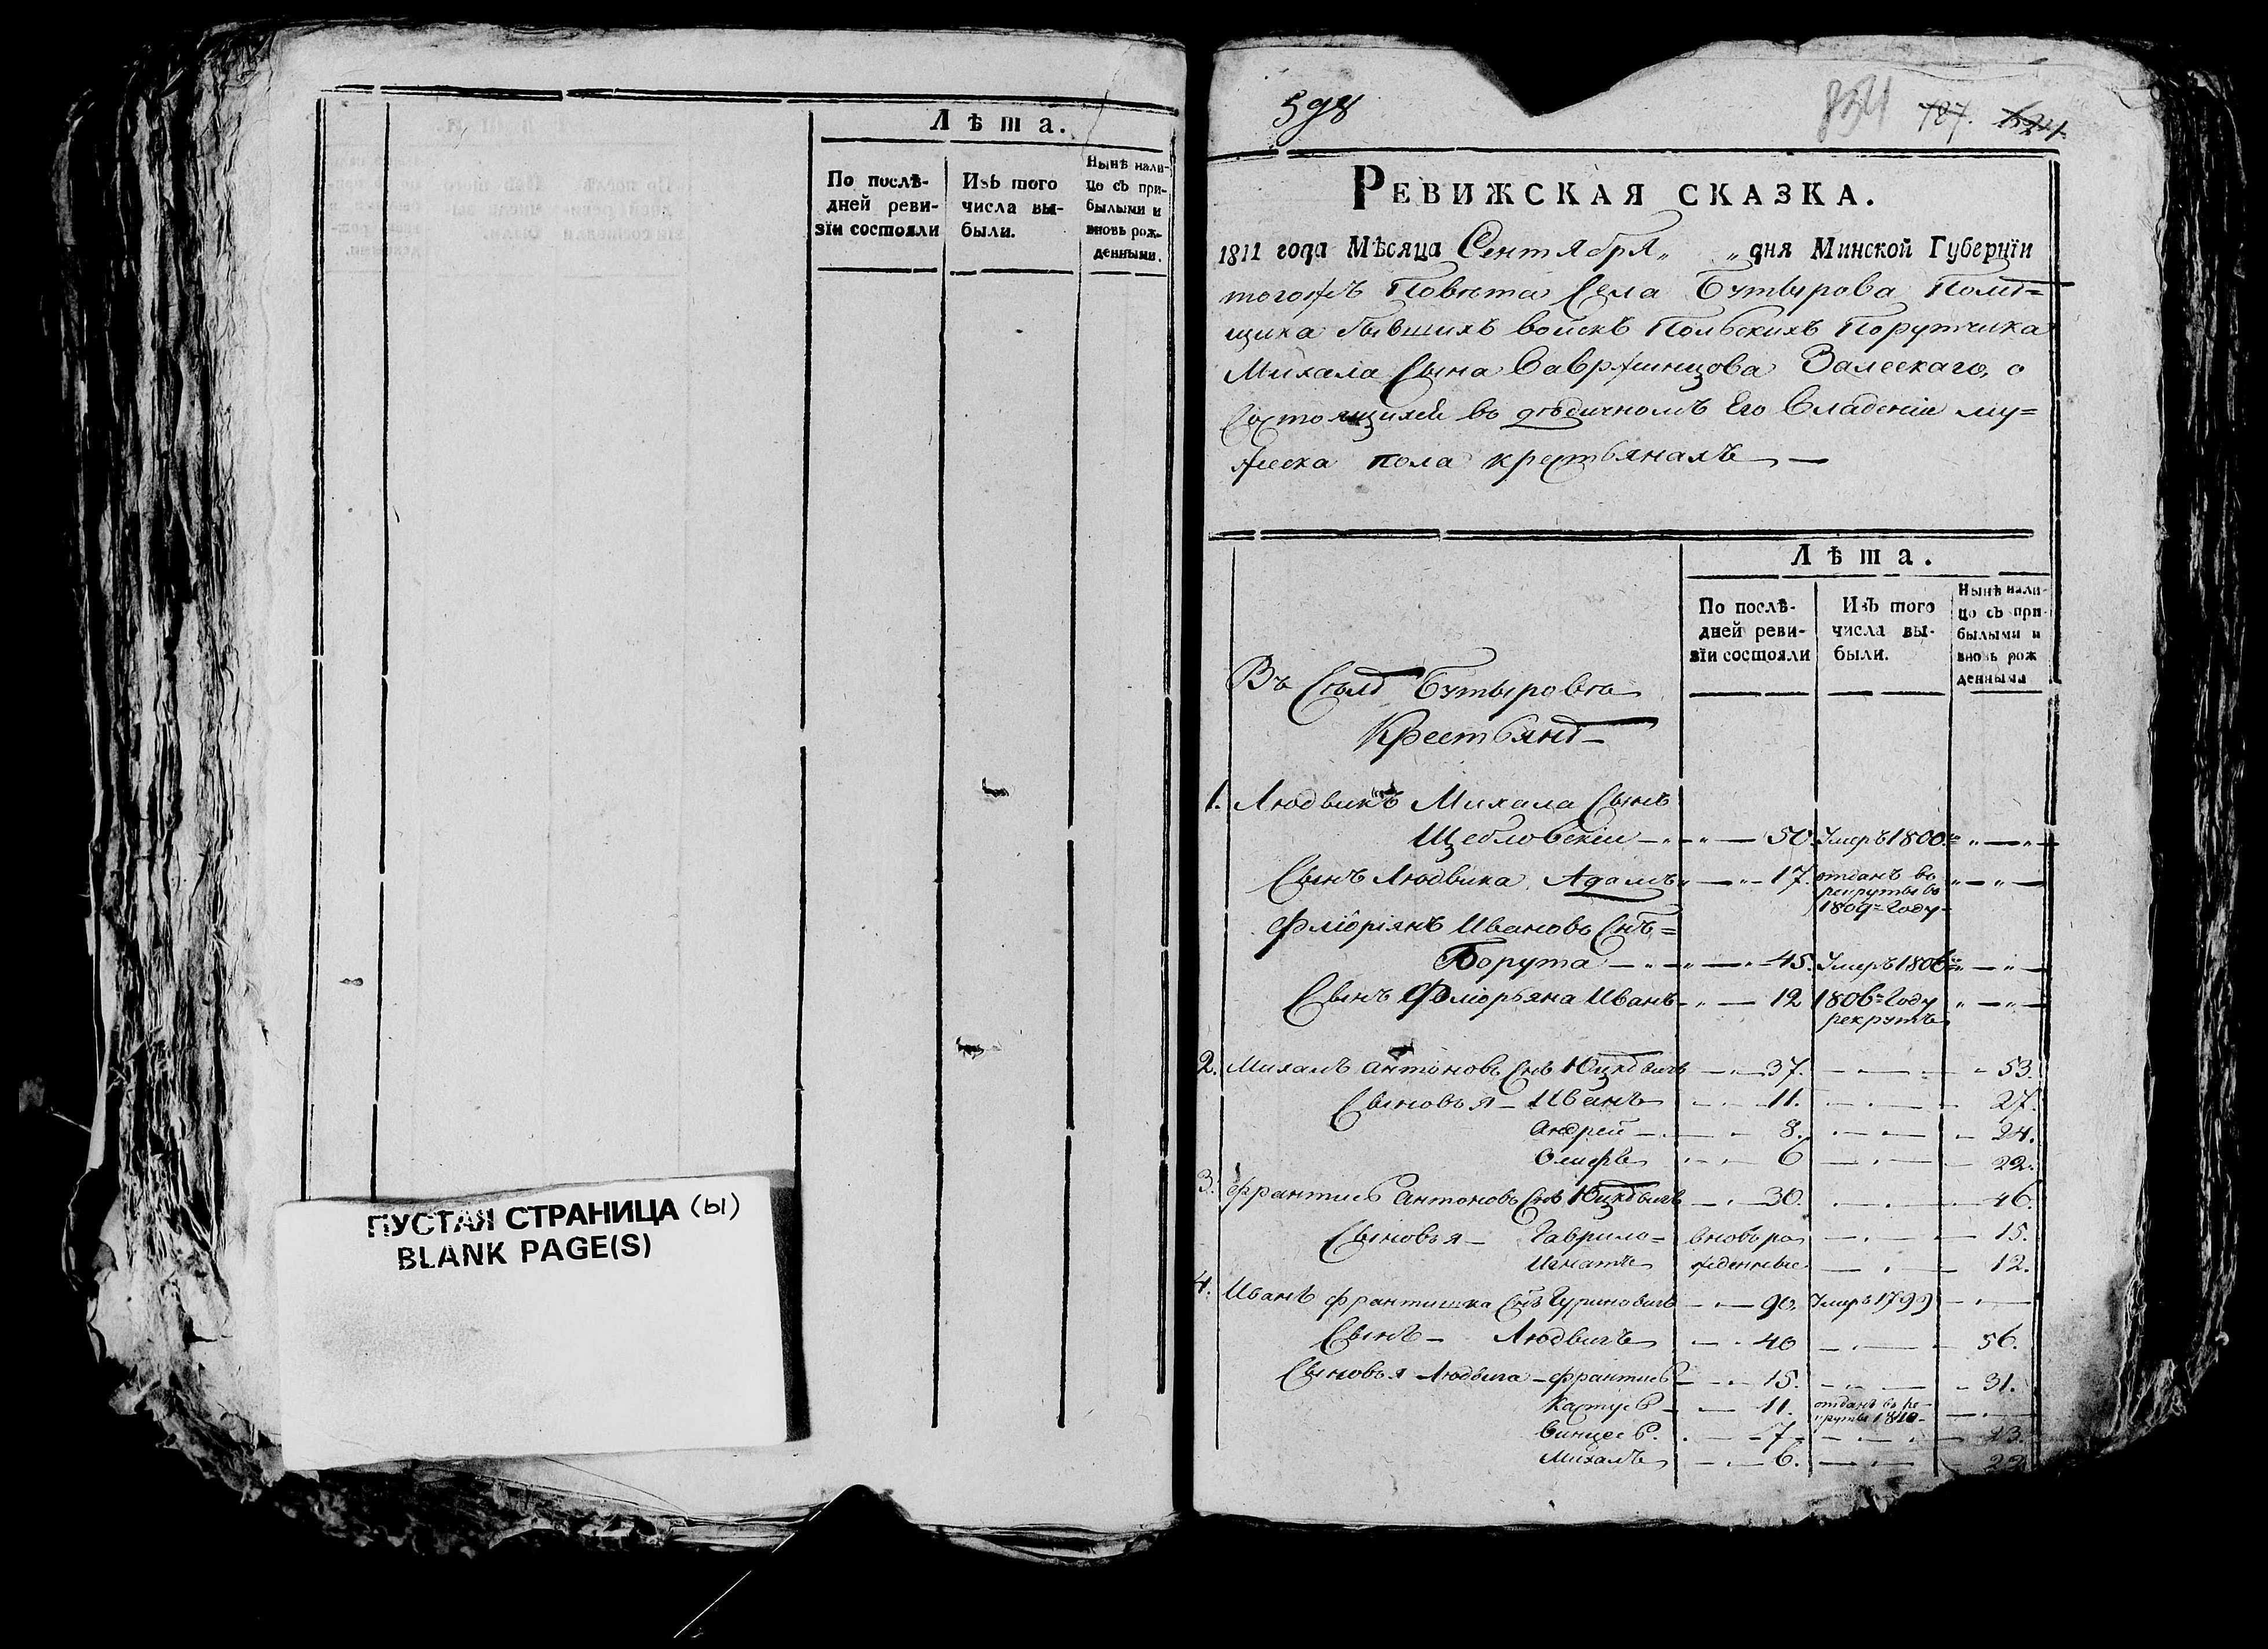 Лѣта.
По послѣ-
дней реви-
зїи состояли
Изъ того
числа вы-
были.
Нынѣ нали-
цо съ при-
былыми и
вновь рож-
денными.
ПУСТАЯ СТРАНИЦА (Ы)
BLANK PAGE(S)
598
834 787. 
РЕВИЖСКАЯ СКАЗКА.
1811 года Мѣсяца Сентября „ „ дня Минской Губернїи
тогожъ Повѣта Села Бутырова Помѣ=
щика бывшихъ войскъ Польскихъ Порутчика
Михала Сына Вавржинцова Залескаго, о
Состоящихъ во дѣдичномъ Его Владѣніи му=
жеска пола крестьянахъ —
Лѣта.
По послѣ-
дней реви-
зїи состояли
Изъ того
числа вы-
были.
Нынѣ нали-
цо съ при-
былыми и
вновь рож
денными
Въ Селѣ Бутырова
Крестьянѣ —
1. Людвикъ Михала Сынъ
Щебловскіи — 50. Умеръ 1800
Сынъ Людвика Адамъ — 17. отданъ во
рекруты во
1809 = Году —
Флióріянъ Ивановъ Снъ =
Борута — 45. Умеръ 1806
Сынъ Флиорьяна Иванъ — 12 1806 = Году
рекрутъ
2. Михалъ Антоновъ Снъ Юцкѣвичъ — 37. — 53.
Сыновья — Иванъ — 11. — 27.
Андрей — 8. — 24.
— 6 — 22.
3. Францись Антоновъ Снъ Юцкѣвичъ — 30. — 46.
Сыновья — Гаврило = вновь ро — 15.
Игнатъ жденные — 12.
4. Иванъ Францишка Снъ Гуриновичъ — 90. Умеръ 1799
Сынъ — Людвигъ — 40 — 56.
Сыновья Людвига — Францись — 15. — 31.
— 11. отданъ въ ре-
круты 1810 —
Винцесь. — 7 — 23.
Михалъ — 6. — 22